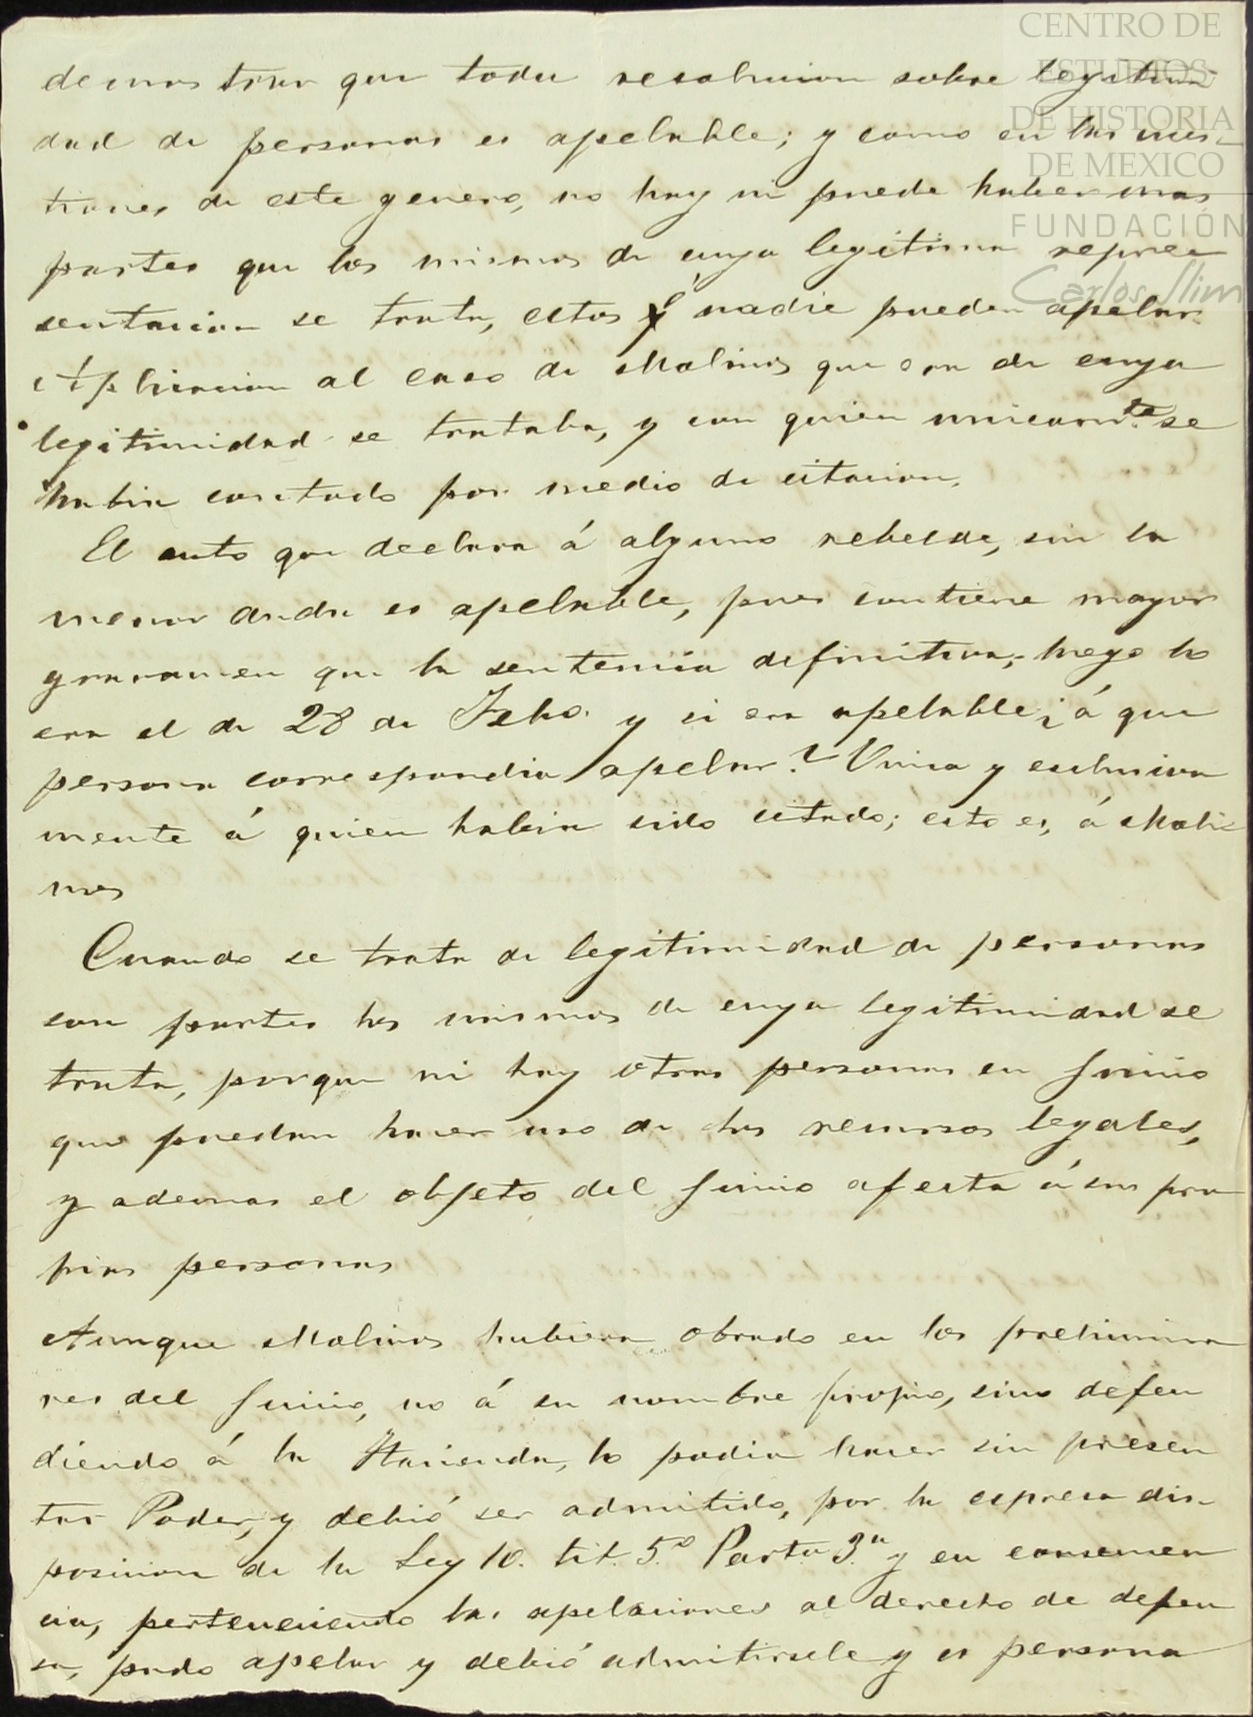 CENTRO DE
ESTUDIOS
DE HISTORIA
DE MEXICO
FUNDACIÓN
Carlos Slim
demostrar que toda resolucion sobre legitimi
dad de personas es apelable; y como en las cues-
tiones de este genero, no hay ni puede haber mas
partes que los mismos de cuya legitima repre
sentacion se trata, estos y nadie pueden apelar.
Aplicacion al caso de Molinos que era de cuya
legitimidad se trataba, y con quien unicamte. se
habia contado por medio de citacion.
El auto que declara á alguno rebelde, sin la
menor duda es apelable, pues contiene mayor
gravamen que la sentencia definitiva; luego lo
era el de 28 de Febo. y si era apelable ¿á que
persona correspondia apelar? Unica y esclusiva
mente á quien habia sido citado; esto es, á Moli-
nos
Cuando se trata de legitimidad de personas
son partes los mismos de cuya legitimidad se
trata, porque ni hay otras personas en juicio
que puedan hacer uso de los recursos legales,
y ademas el objeto del juicio afecta á sus pro
pias personas
Aunque Molinos hubiera obrado en los prelimina
res del juicio, no á su nombre propio, sino defen
diendo á la Hacienda, lo podia hacer sin presen
tar Poder, y debió ser admitido, por la espresa dis-
posicion de la Ley 10. tit. 5.º Parta. 3.a y en consecuen
cia, perteneciendo las apelaciones al derecho de defen
sa, pudo apelar y debió admitirsele y es persona